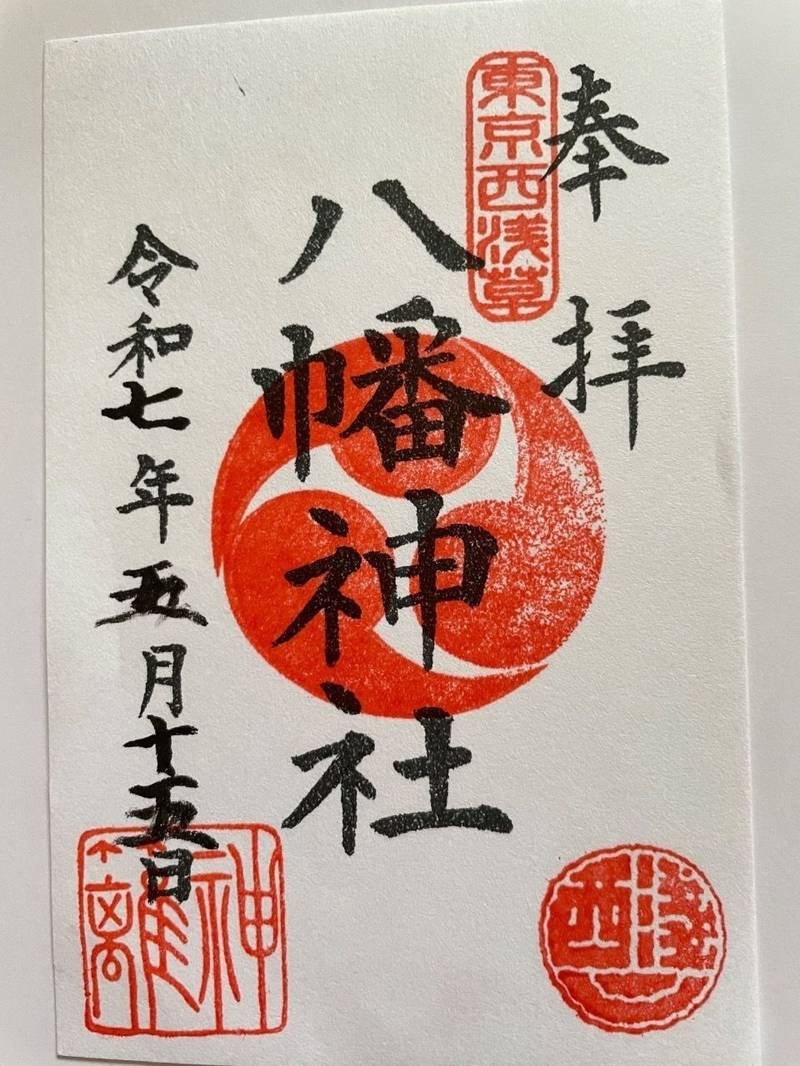 奉拝
東京西浅草
八幡神社
令和七年五月十五日